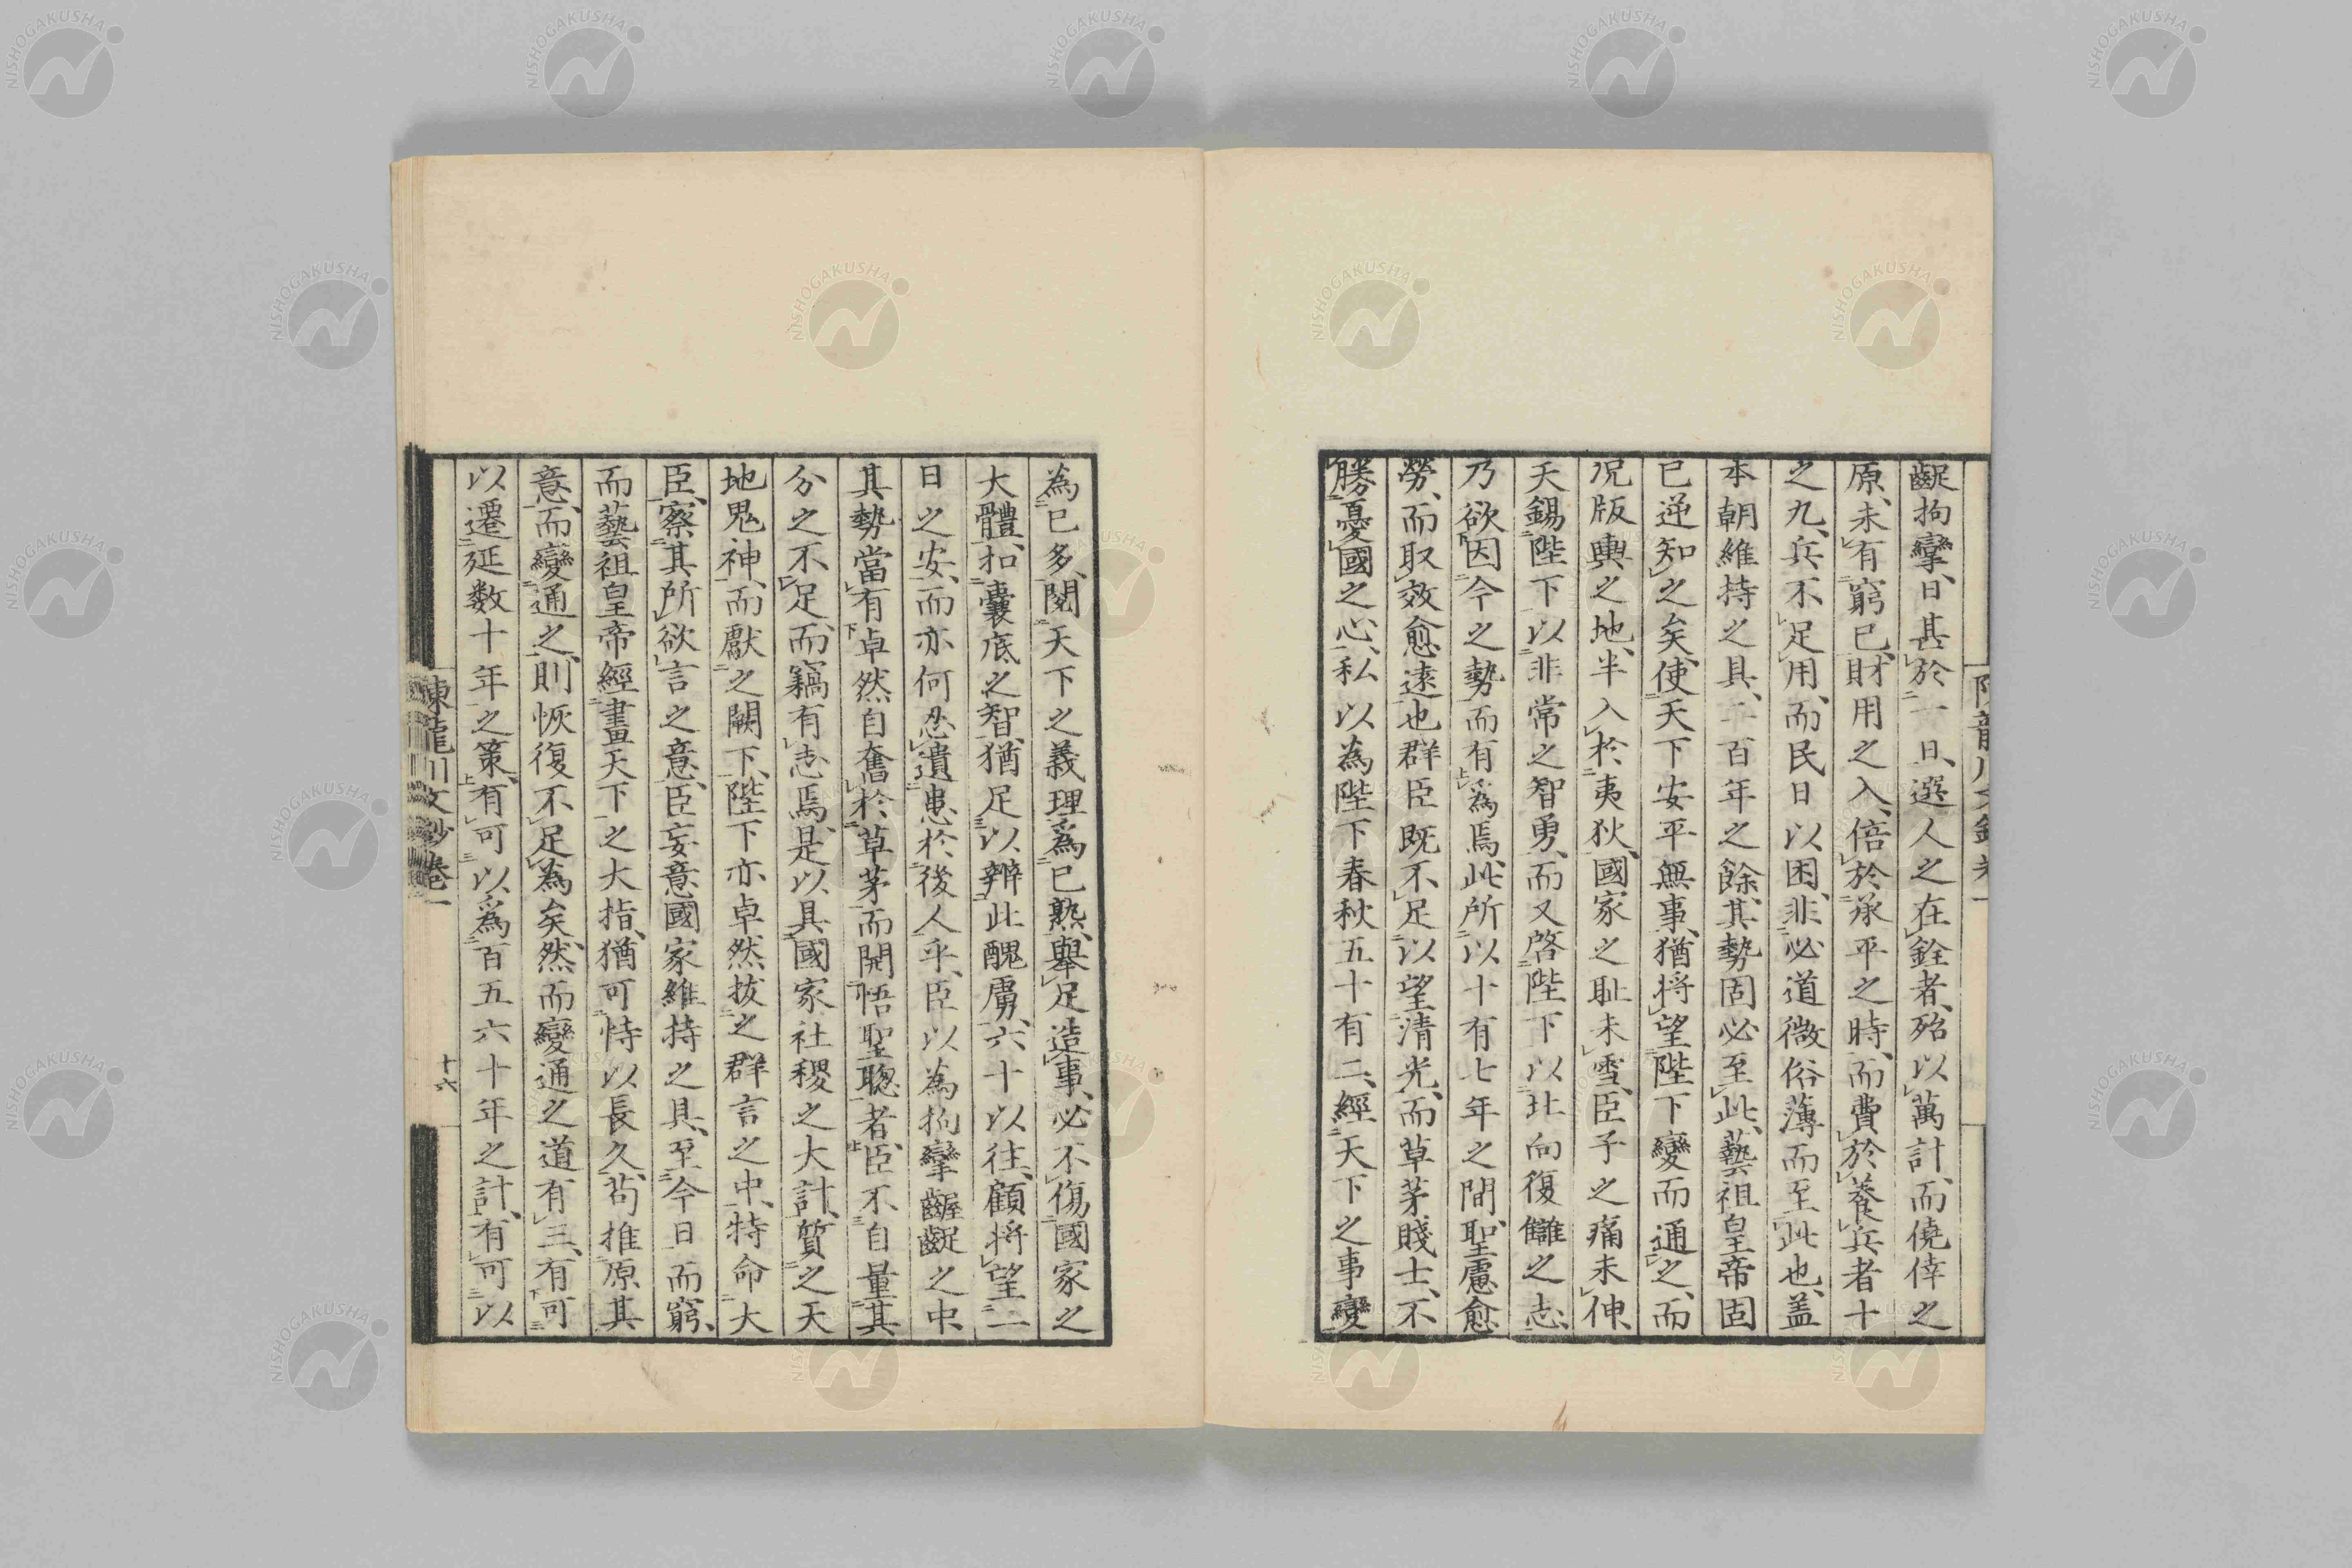 齪拘攣、日甚於一日、選人之在銓者、殆以萬計、而僥倖之
原、未有窮已、財用之入、倍於承平之時、而費於養兵者十
之九、兵不足用、而民日以困、非必道微俗薄而至此也、盖
本朝維持之具、二百年之餘、其勢固必至此、藝祖皇帝固
已逆知之矣、使天下安平無事、猶将望陛下變而通之、而
況版輿之地、半入於夷狄、國家之耻未雪、臣子之痛未伸、
天錫陛下以非常之智勇、而又啓陛下以北向復讎之志、
乃欲因今之勢而有爲焉、此所以十有七年之間聖慮愈
勞、而取效愈遠也群臣既不足以望清光、而草茅賤士、不
勝憂國之心、私以為陛下春秋五十有二、經天下之事變
為已多、閲天下之義理爲已熟、舉足造事、必不傷國家之
大體、扣囊底之智、猶足以辨此醜虜、六十以往、顧将望二
日之安、而亦何忍遺患於後人乎、臣以為拘攣齷齪之中、
其勢當有卓然自奮於草茅而開悟聖聰者、臣不自量其
分之不足、而竊有志焉、是以具國家社稷之大計、質之天
地鬼神、而獻之闕下、陛下亦卓然拔之群言之中、特命大
臣、察其所欲言之意、臣妄意國家維持之具、至今日而窮、
而藝祖皇帝經畫天下之大指、猶可恃以長久、苟推原其
意、而變通之、則恢復不足為矣、然而變通之道有三、有可
以遷延数十年之策、有可以爲百五六十年之計、有可以
陳龍川文鈔卷一
十六
NISHOGAKUSHA